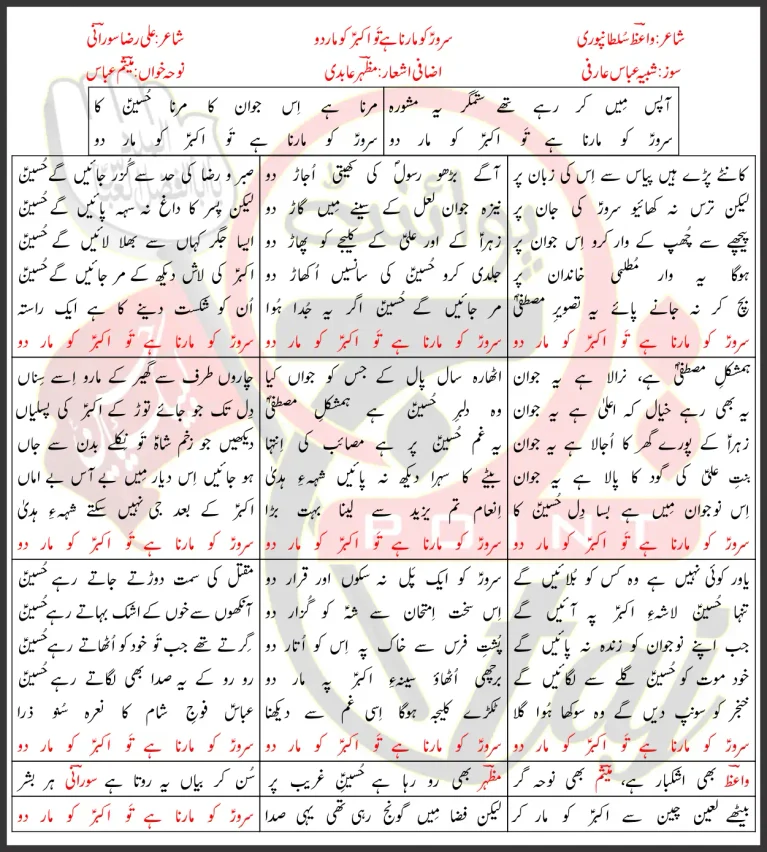 شاعر: واعظ سُلطانپوری
سرورؑ کو مارنا ہے تَو اکبرؑ کو مار دو
شاعر: علی رضا سورائی
سوز: شبیہ عباس عارفی
اضافی اشعار: مظہر عابدی
نوحہ خواں: میثم عباس
آپس مِیں کر رہے تھے ستمگر یہ مشورہ
مرنا ہے اِس جوان کا مرنا حُسینؑ کا
سرورؑ کو مارنا ہے تَو اکبرؑ کو مار دو
سرورؑ کو مارنا ہے تَو اکبرؑ کو مار دو
کانٹے پڑے ہیں پیاس سے اِس کی زبان پر
لیکن ترس نہ کھائیو سرورؑ کی جان پر
پیچھے سے چُھپ کے وار کرو اِس جوان پر
ہوگا یہ وار مُطلبی خاندان پر
بچ کر نہ جانے پائے یہ تصویرِ مصطفیٰؐ
سرورؑ کو مارنا ہے تَو اکبرؑ کو مار دو
آگے بڑھو رسولؐ کی کھیتی اُجاڑ دو
نیزہ جوان لعل کے سینے مِیں گاڑ دو
زہراؑ کے اور علیؑ کے کلیجے کو پھاڑ دو
جلدی کرو حُسینؑ کی سانسیں اُکھاڑ دو
مر جائیں گے حُسینؑ اگر یہ جُدا ہُوا
سرورؑ کو مارنا ہے تَو اکبرؑ کو مار دو
صبر و رضا کی حد سے گُزر جائیں گے حُسینؑ
لیکن پِسر کا داغ نہ سہہ پائیں گے حُسینؑ
ایسا جگر کہاں سے بھلا لائیں گے حُسینؑ
اکبرؑ کی لاش دیکھ کے مر جائیں گے حُسینؑ
اُن کو شکست دینے کا ہے ایک راستہ
سرورؑ کو مارنا ہے تَو اکبرؑ کو مار دو
ہمشکلِ مصطفیٰؐ ہے، نرالا ہے یہ جوان
یہ بھی رہے خیال کہ اعلیٰ ہے یہ جوان
زہراؑ کے پورے گھر کا اُجالا ہے یہ جوان
بنتِ علیؑ کی گود کا پالا ہے یہ جوان
اِس نوجوان مِیں ہے بسا دِل حُسینؑ کا
سرورؑ کو مارنا ہے تَو اکبرؑ کو مار دو
اٹھارہ سال پال کے جس کو جواں کیا
وہ دلبرِ حُسینؑ ہے ہمشکلِ مصطفیٰؐ
یہ غم حُسینؑ پر ہے مصائب کی اِنتہا
بیٹے کا سہرا دیکھ نہ پائیں شہہءِ ہدیٰؑ
اِنعام تم یزید سے لینا بہت بڑا
سرورؑ کو مارنا ہے تَو اکبرؑ کو مار دو
چاروں طرف سے گھیر کے مارو اِسے سِناں
دِل تک جو جائے توڑ کے اکبرؑ کی پسلیاں
دیکھیں جو زخم شاہؑ تَو نکلے بدن سے جاں
ہو جائیں اِس دیار مِیں بے آس بے اماں
اکبرؑ کے بعد جی نہیں سکتے شہہءِ ہدیٰؑ
سرورؑ کو مارنا ہے تَو اکبرؑ کو مار دو
یاور کوئی نہیں ہے وہ کس کو بُلائیں گے
تنہا حُسینؑ لاشہءِ اکبرؑ پہ آئیں گے
جب اپنے نوجوان کو زندہ نہ پائیں گے
خود موت کو حُسینؑ گلے سے لگائیں گے
خنجر کو سونپ دیں گے وہ سوکھا ہُوا گلا
سرورؑ کو مارنا ہے تَو اکبرؑ کو مار دو
سرورؑ کو ایک پَل نہ سکوں اور قرار دو
اِس سخت اِمتحان سے شہؑ کو گُزار دو
پُشتِ فرس سے خاک پہ اِس کو اُتار دو
برچھی اُٹھاؤ سینہءِ اکبرؑ پہ مار دو
ٹکڑے کلیجہ ہوگا اِسی غم سے دیکھنا
سرورؑ کو مارنا ہے تَو اکبرؑ کو مار دو
مقتل کی سمت دوڑتے جاتے رہے حُسینؑ
آنکھوں سے خوں کے اشک بہاتے رہے حُسینؑ
گِرتے تھے جب تَو خود کو اُٹھاتے رہے حُسینؑ
رو رو کے یہ صدا بھی لگاتے رہے حُسینؑ
عباسؑ فوجِ شام کا نعرہ سُنو ذرا
سرورؑ کو مارنا ہے تَو اکبرؑ کو مار دو
واعظ بھی اشکبار ہے، میثم بھی نوحہ گر
مظہر بھی رو رہا ہے حُسینِؑ غریب پر
سُن کر بیاں یہ روتا ہے سورائی ہر بشر
بیٹھے لعین چین سے اکبرؑ کو مار کر
لیکن فضا مِیں گونج رہی تھی یہی صدا
سرورؑ کو مارنا ہے تَو اکبرؑ کو مار دو
POINT
taj